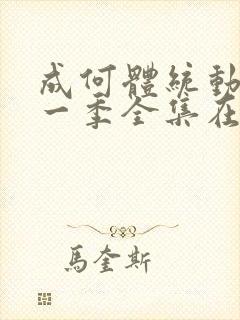 成何體統動
一季全集在
馬奎斯